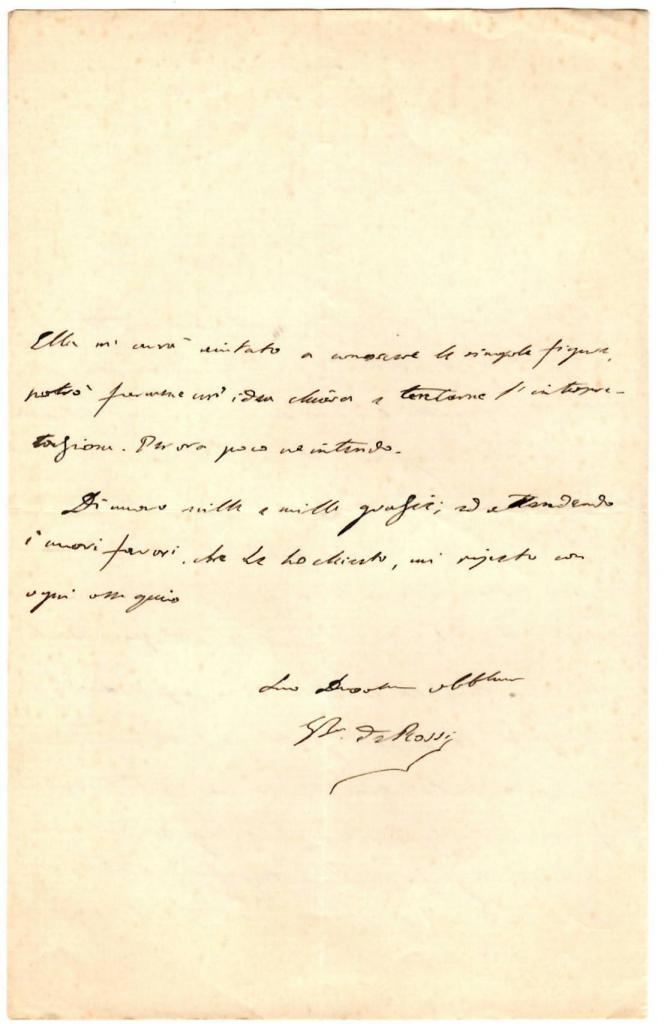 Ella mi avrà aiutato a conoscere le singole figure,
potrò farmene un'idea chiara e tentarne l'interpre-
tazione. Per ora poco ne intendo.
Di nuovo mille e mille grazie; ed attendendo
i nuovi favori, che Le ho chiesto, mi ripeto con
ogni ossequio
Suo Devotm obblmo
GB. de Rossi